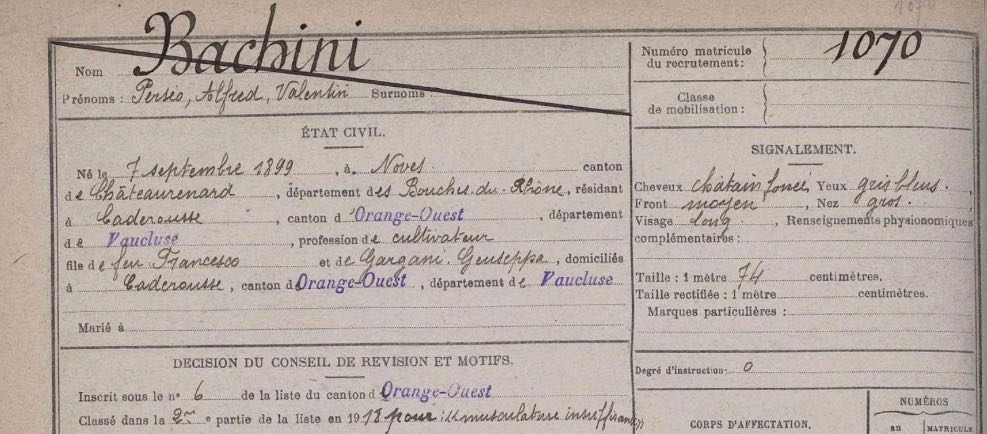 1070
Nom Bachini
Prénoms : Perséo, Alfred, Valentin Surnoms :
ÉTAT CIVIL.
Né le 7 septembre 1899, à Noves canton
de Châteaurenard, département des Bouches-du-Rhône, résidant
à Caderousse, canton d'Orange-Ouest, département
de Vaucluse, profession de cultivateur
fils de feu Francesco et de Gargani Geuseppa, domiciliés
à Caderousse, canton d'Orange-Ouest, département de Vaucluse
Marié à
DECISION DU CONSEIL DE REVISION ET MOTIFS.
Inscrit sous le n° 6 de la liste du canton d'Orange-Ouest
Classé dans la 2me e partie de la liste en 1918 pour : "musculature insuffisante"
Numéro matricule
du recrutement : 1070
Classe
de mobilisation :
SIGNALEMENT.
Cheveux châtain foncé, Yeux gris bleus,
Front moyen, Nez gros.
Visage long, Renseignements physionomiques
complémentaires :
Taille : 1 mètre 74 centimètres.
Taille rectifiée : 1 mètre centimètres.
Marques particulières :
Degré d'instruction : 0
CORPS D'AFFECTATION.
NUMÉROS
au MATRICULE